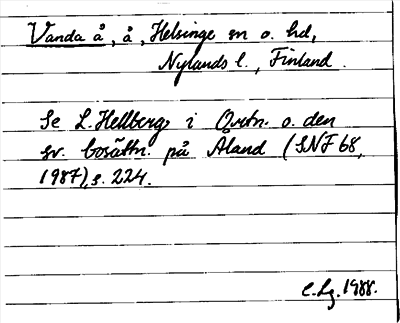 Vanda å, å, Helsinge sn o. hd,
Nylands l., Finland.
Se L. Hellberg i Ortn. o. den
sv. bosättn. på Åland (SNF 68,
1987), s. 224.
C. Lg. 1988.